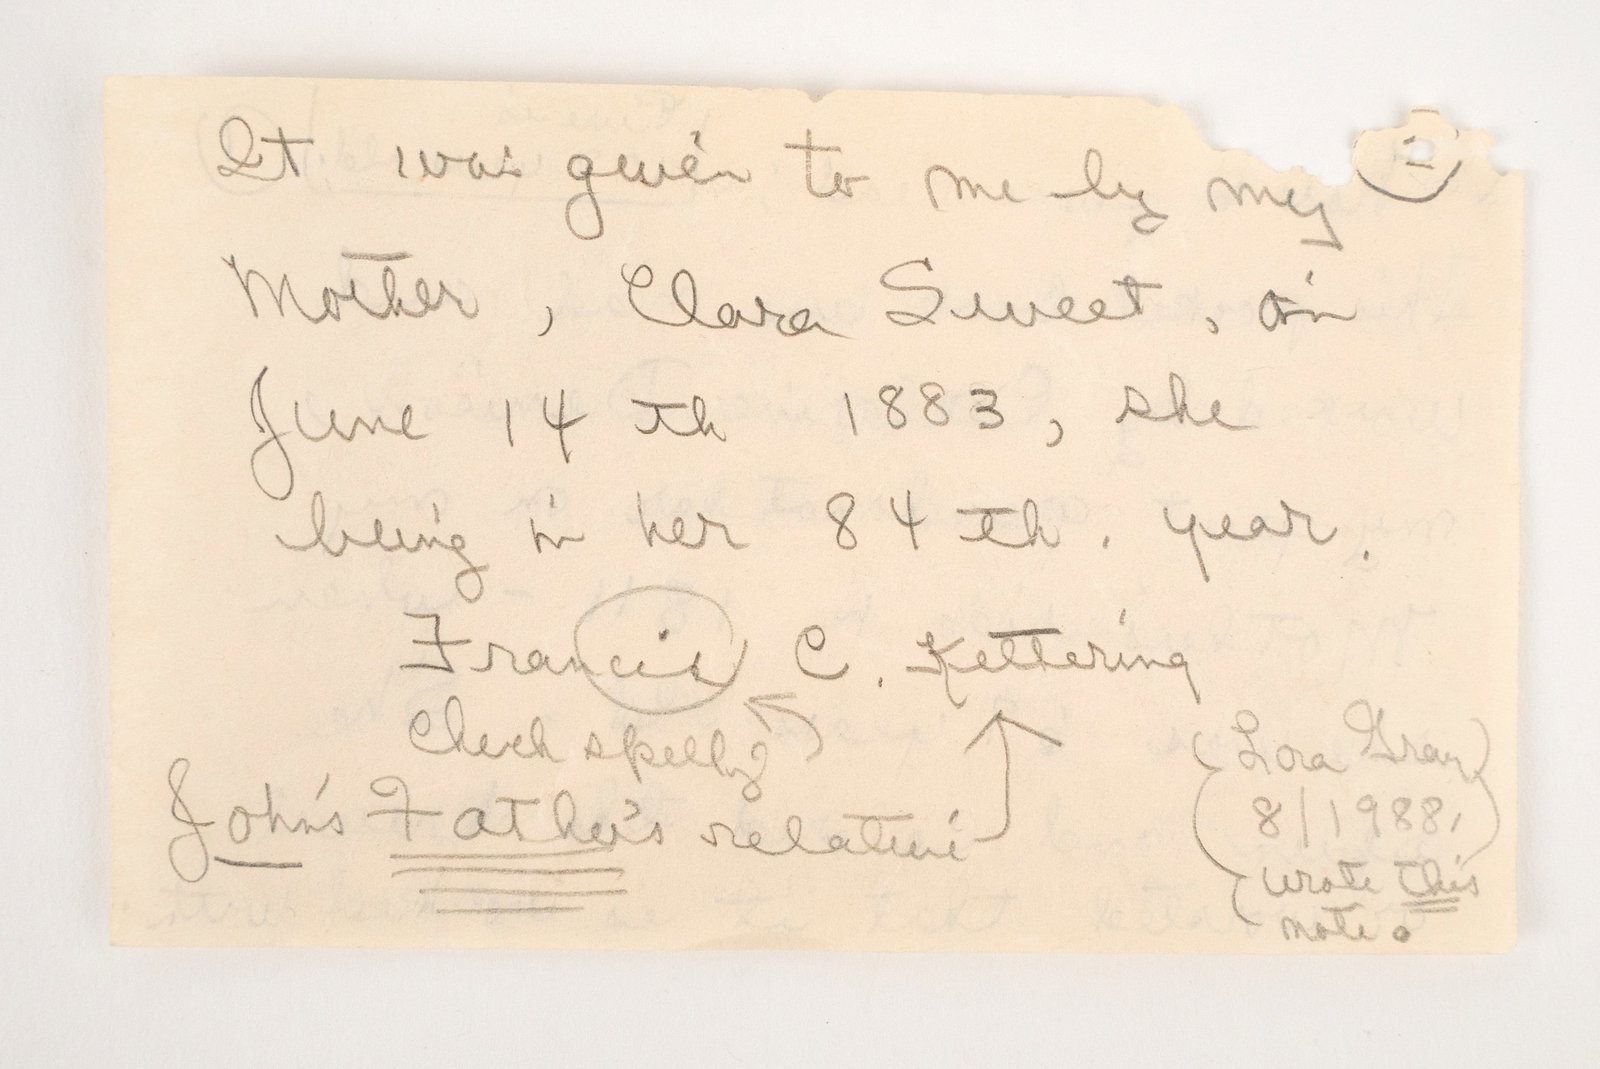 It was given to me by my
Mother, Clara Sweet, on
June 14 th 1883, she
being in her 84 th. year.
Francis C. Kettering
Check spelling
John's Father's relative
(Lora Gray
8/1988,
wrote this
note.